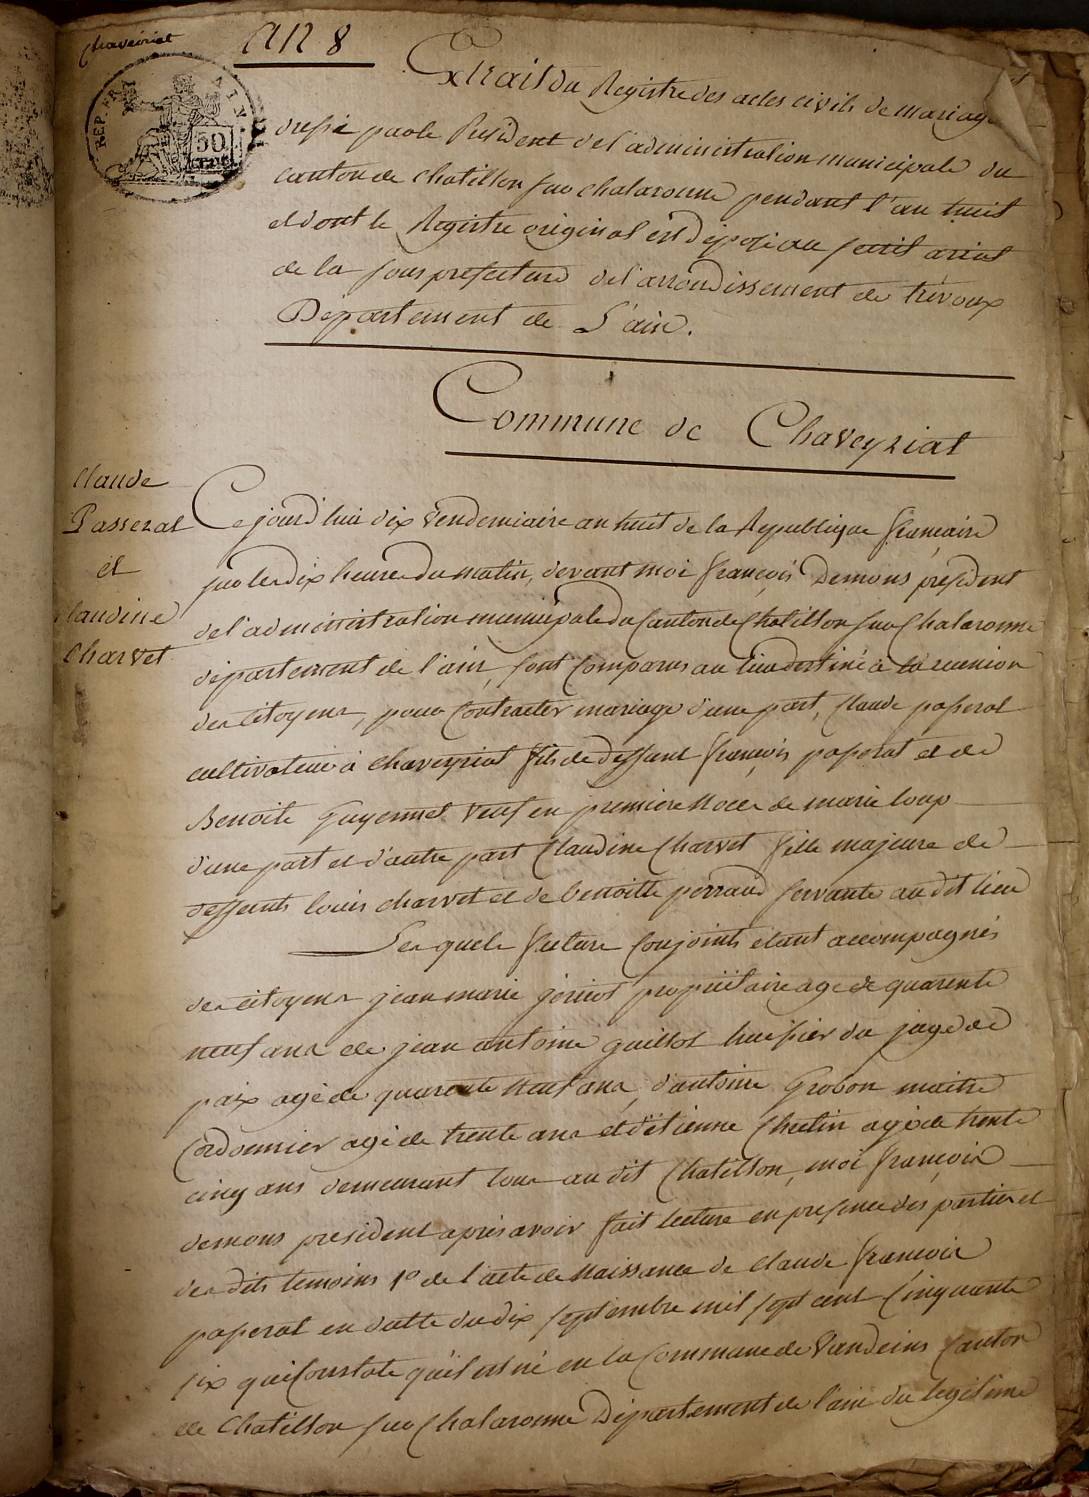 Chaveiriat
AN 8
REP. FRA
AIN
50
CENT.
Extrait du Registre des actes civils de mariage
dressé par le President de l'administration municipale du
canton de chatillon sur chalaronne pendant l'an huit
et dont le Registre original est déposé au secrétariat
de la sous prefecture de l'arrondissement de trévoux
Département de L'ain.
Commune de Chaveyriat
Claude
Passerat
et
claudine
Charvet
Ce jourd'hui dix vendemiaire an huit de la Republique francaise
sur les dix heures du matin, devant moi françois Demons président
de l'administration municipale du Canton de Chatillon sur Chalaronne
département de l'ain, sont Comparus au lieu destiné à la reunion
des Citoyens, pour Contracter mariage d'une part, Claude passerat
cultivateur à chaveyriat fils de deffunt françois passerat et de
Benoite Guyennet veuf en premiere Noces de marie loup
d'une part et d'autre part Claudine Charvet fille majeure de
deffunts louis charvet et de benoitte perraud servante au dit lieu
Les quels futurs Conjoints étant accompagnés
des citoyens jean marie propriétaire agé de quarente
neuf ans de jean antoine guillot huissier du juge de
paix agé de quarente neuf ans, d'antoine Grobon maitre
Cordonnier agé de trente ans et d'étienne agé de trente
cinq ans demeurant tous au dit Chatillon, moi françois
demons president après avoir fait lecture en présence des parties et
des dits temoins 1º de l'acte de Naissance de claude françois
passerat en datte du dix septembre mil sept cent Cinquante
six qui Constate qu'il est né en la Commune de Vandeins Canton
de Chatillon sur Chalaronne Département de l'ain du legitime